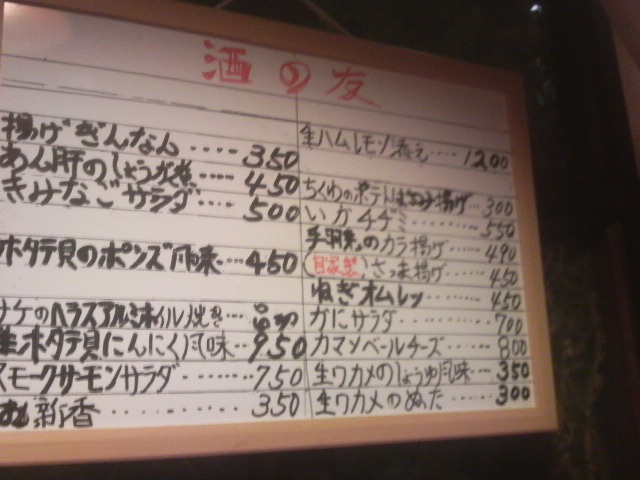 酒の友
揚げぎんなん・・・・350
あん肝のしょうが煮・・・・450
きみなごサラダ・・・500
ホタテ貝のポンズ風味・・・450
ハラスアルミホイル焼き・・
生ホタテ貝にんにく風味・・950
スモークサーモンサラダ・・・・・750
新香・・・・・・・・・350
生ハムレモン添え・・・・1200
ちくわのポテト揚げ・・・300
いかチヂミ・・・・・・・550
手羽先のカラ揚げ・・・・490
(自家製)さつま揚げ・・・・450
ねぎオムレツ・・・・・450
かにサラダ・・・・・・・・700
カマンベールチーズ・・・・800
生ワカメのしょうゆ風味・・・350
生ワカメのぬた・・・300